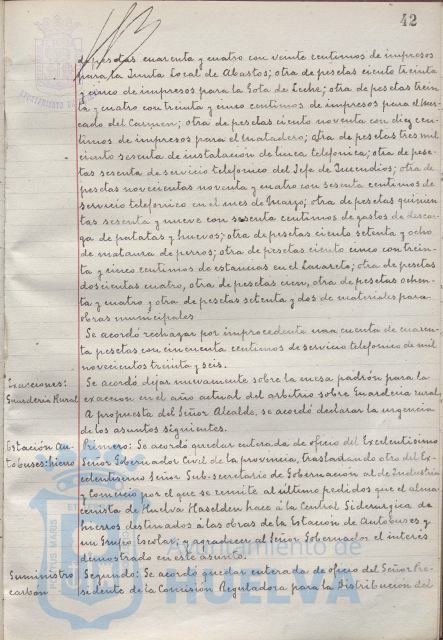 42
de pesetas cuarenta y cuatro con veinte centimos de impresos
para la Junta Local de Abastos; otra de pesetas ciento treinta
y cinco de impresos para la Gota de Leche; otra de pesetas trein
ta y cuatro con treinta y cinco centimos de impresos para el Mer-
cado del Carmen; otra de pesetas ciento noventa con diez cen-
timos de impresos para el Matadero; otra de pesetas tres mil
ciento sesenta de instalación de linea telefonica; otra de pese-
tas sesenta de servicio telefonico del Jefe de Incendios; otra de
pesetas novecientas noventa y cuatro con sesenta centimos de
servicio telefonico en el mes de Marzo; otra de pesetas quinien
tas sesenta y nueve con sesenta centimos de gastos de descar-
ga de patatas y huevos; otra de pesetas ciento setenta y ocho
de matanza de perros; otra de pesetas ciento cinco con trein-
ta y cinco centimos de estancias en el Lazareto; otra de pesetas
doscientas cuatro, otra de pesetas cien, otra de pesetas ochen-
ta y cuatro y otra de pesetas setenta y dos de materiales para
obras municipales
Se acordó rechazar por improcedente una cuenta de cuaren-
ta pesetas con cincuenta centimos de servicio telefonico de mil
novecientos treinta y seis.
Exacciones: Se acordó dejar nuevamente sobre la mesa padrón para la
Guarderia Rural exaccion en el año actual del arbitrio sobre Guarderia rural
A propuesta del Señor Alcalde, se acordó declarar la urgencia
de los asuntos siguientes.
Estación Au- Primero: Se acordó quedar enterada de oficio del Excelentisimo
tobuses: hierro Señor Gobernador Civil de la provincia, trasladando otro del Ex-
celentisimo Señor Sub-secretario de Gobernación al de Industria
y Comercio por el que se remite al último pedidos que el alma
cenista de Huelva Haselden hace á la Central Siderurgica de
hierros destinados á las obras de la Estación de Autobuses y
un Grupo Escolar; y agradecer al Señor Gobernador el interes
demostrado en este asunto.
Suministro Segundo: Se acordó quedar enterada de oficio del Señor Pre-
carbón sidente de la Comisión Reguladora para la Distribución del
Ayuntamiento de
HUELVA